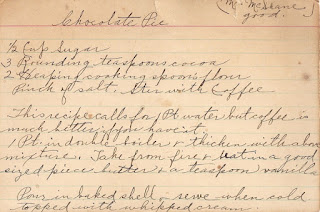 (Mr. McShane
good.)
Chocolate Pie
1/2 Cup Sugar
3 Rounding teaspoons cocoa
2 Heaping cooking spoons flour
Pinch of salt. Stir with Coffee
This recipe calls for 1 Pt. water but coffee is
much better if you have it.
1 Pt. in double boiler & thicken with above
mixture. Take from fire & in a good
sized piece butter & a teaspoon vanilla
Pour in baked shell & serve when cold
topped with whipped cream.